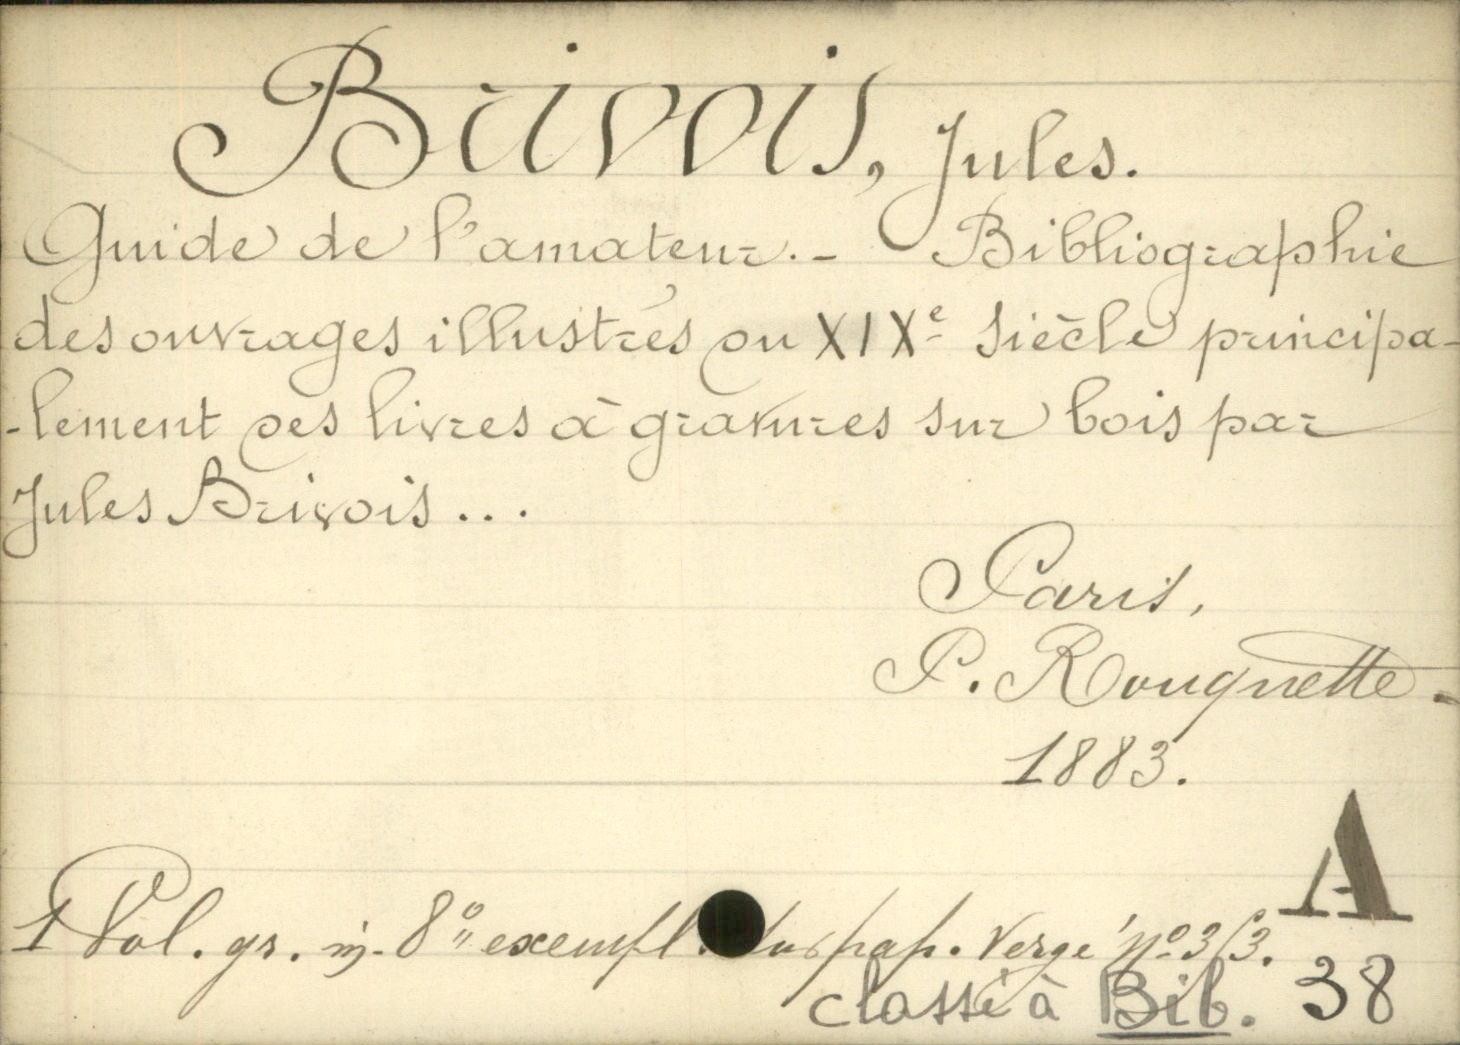 Brivois, Jules.
Guide de l'amateur. - Bibliographie
des ouvrages illustrés du XIXe siècle principa-
-lement des livres à gravures sur bois par
Jules Brivois...
Paris,
P. Rouquette.
1883.
1 Vol. gr. in-8° exempl. sur pap. Vergé nº 313.
A
38
classé à Bib.